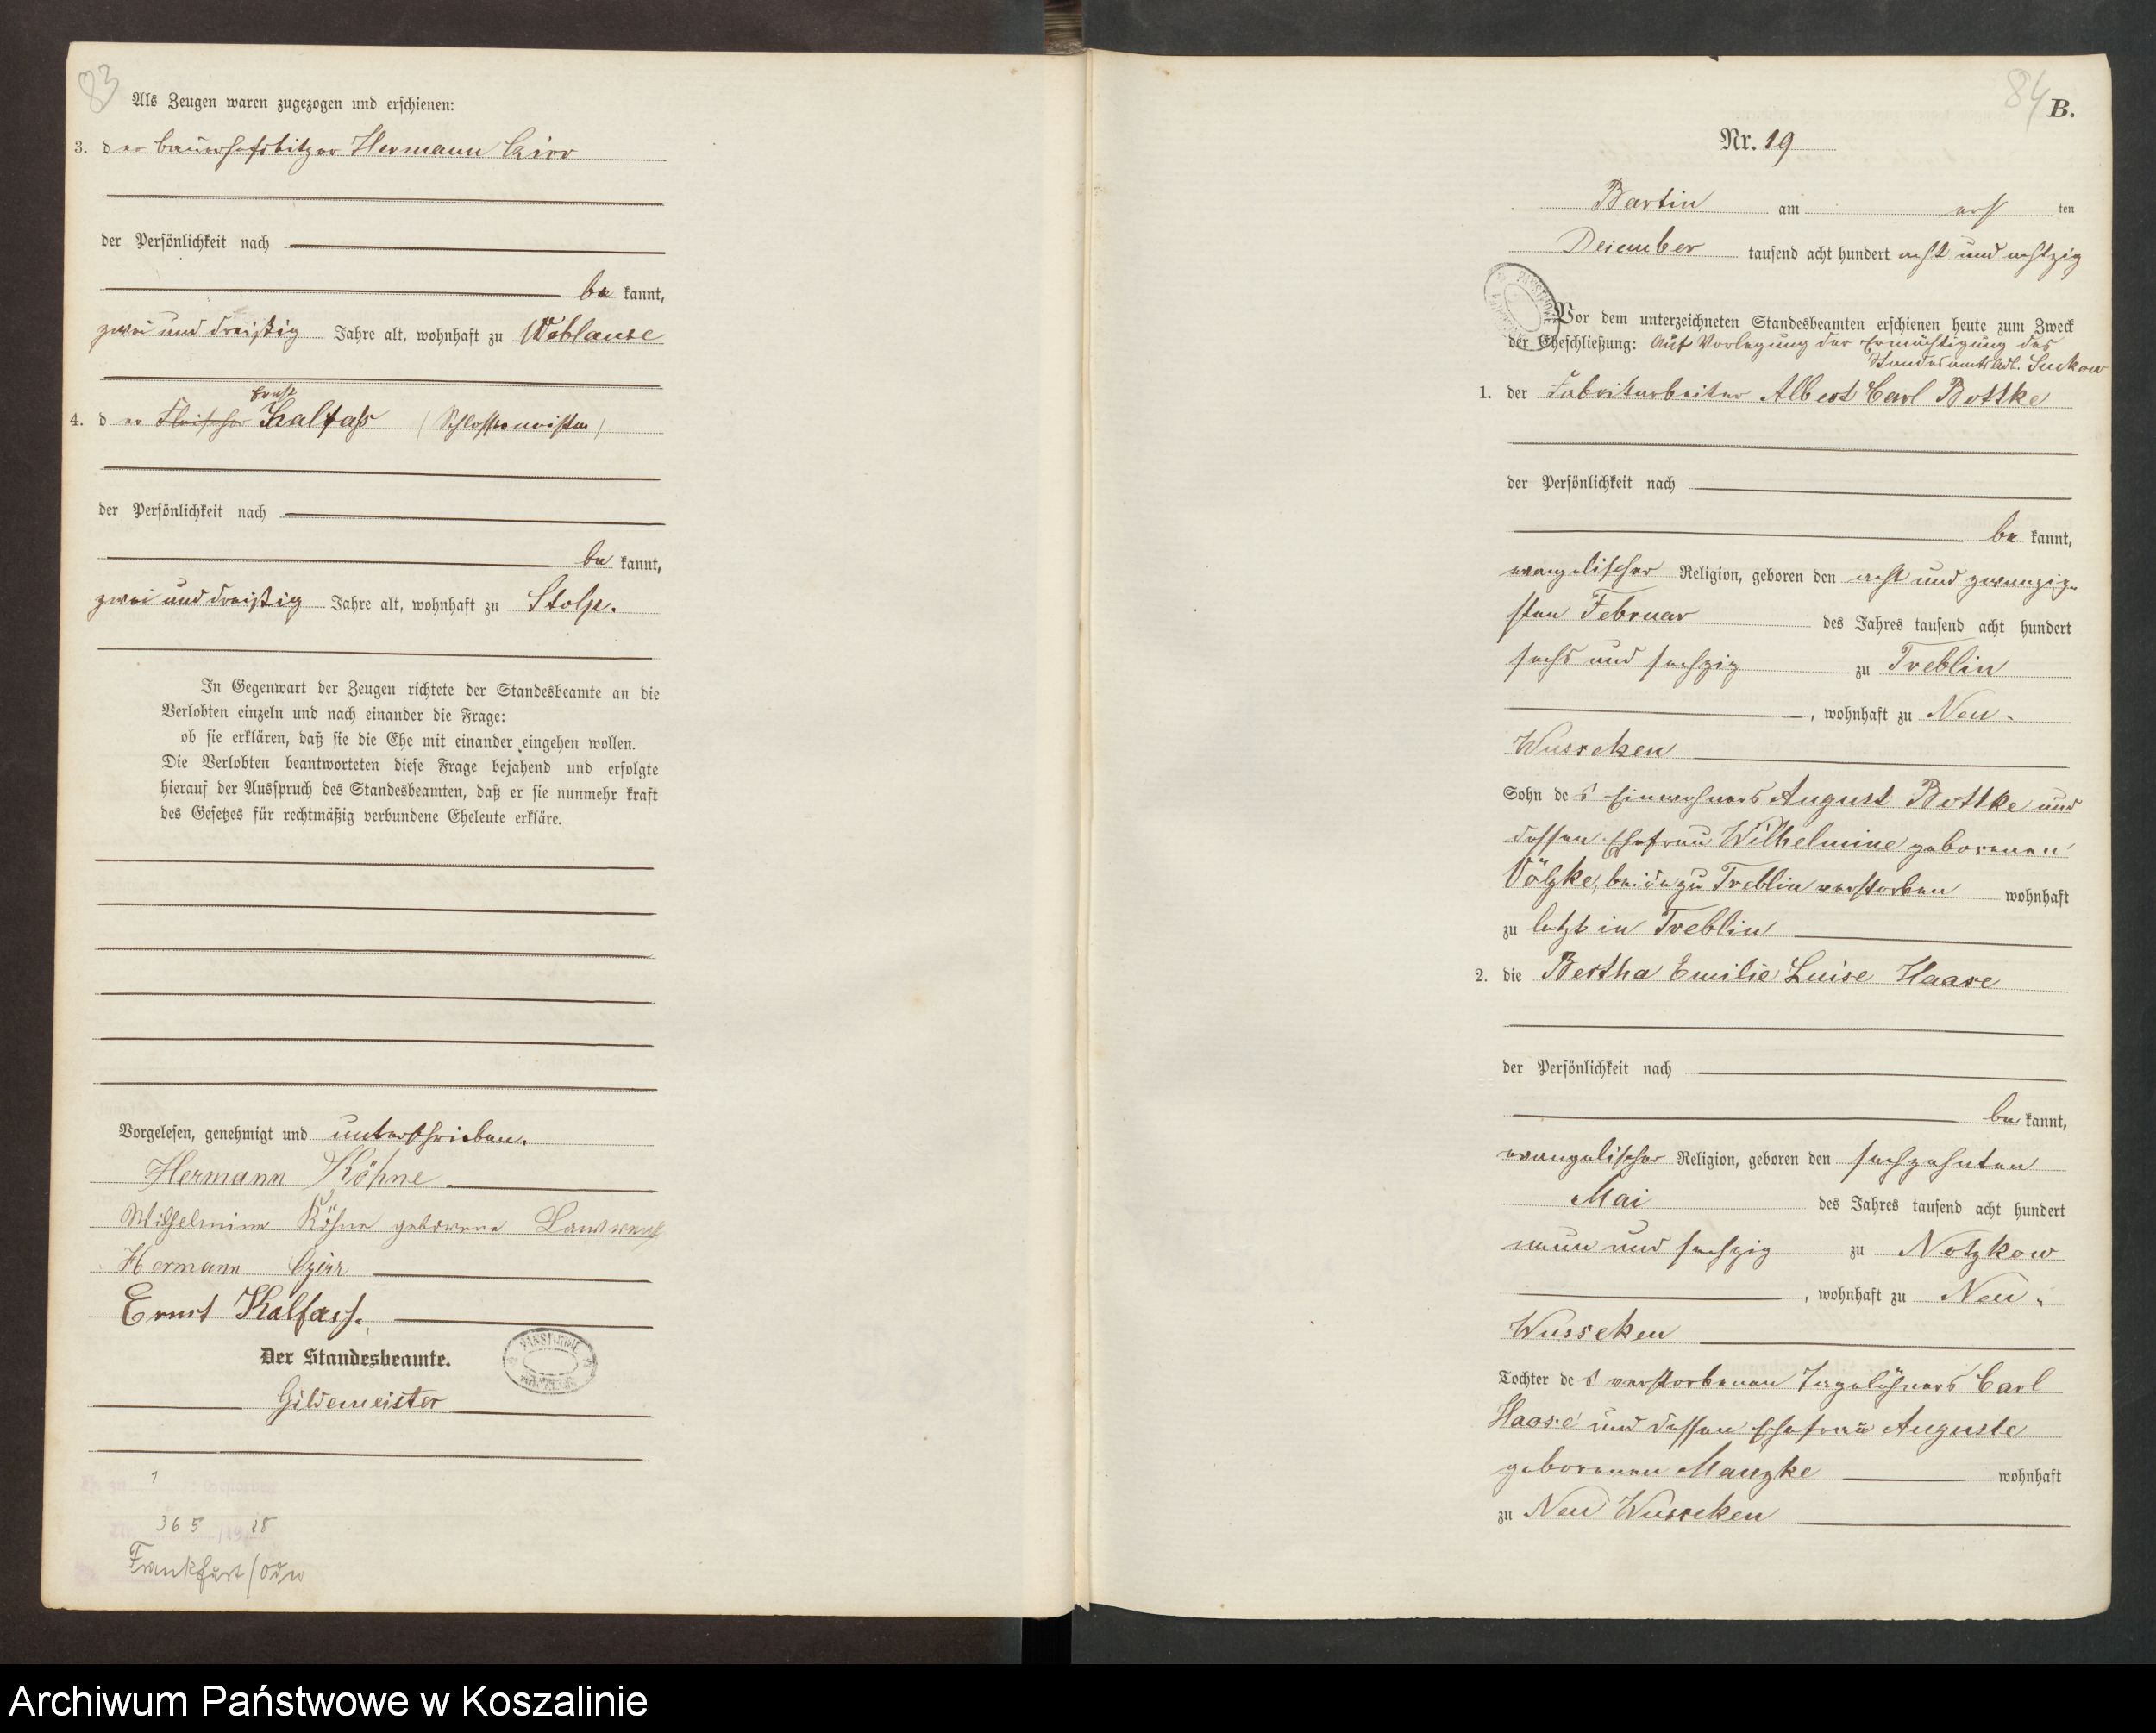 83
Als Zeugen waren zugezogen und erschienen:
3. der Bauerhofsbesitzer Hermann
der Persönlichkeit nach
be kannt,
zwei und dreißig Jahre alt, wohnhaft zu Woblanse
Ernst
4. der Fleischer Kalfass (Schlossermeister)
der Persönlichkeit nach
be kannt,
zwei und dreißig Jahre alt, wohnhaft zu Stolp.
In Gegenwart der Zeugen richtete der Standesbeamte an die
Verlobten einzeln und nach einander die Frage:
ob sie erklären, daß sie die Ehe mit einander eingehen wollen.
Die Verlobten beantworteten diese Frage bejahend und erfolgte
hierauf der Ausspruch des Standesbeamten, daß er sie nunmehr kraft
des Gesetzes für rechtmäßig verbundene Eheleute erkläre.
Vorgelesen, genehmigt und unterschrieben.
Hermann Köhne
Wilhelmine Köhne geborene
Hermann
Ernst Kalfass.
Der Standesbeamte.
Gildemeister
1
365 28
Frankfurt/Oder
84
B.
Nr. 19
Bartin am erst ten
Dezember tausend acht hundert acht und achtzig
Vor dem unterzeichneten Standesbeamten erschienen heute zum Zweck
der Eheschließung: Auf Vorlegung der Ermächtigung des
Standesamts Adl. Suckow
1. der Fabrikarbeiter Albert Carl Bottke
der Persönlichkeit nach
be kannt,
evangelischer Religion, geboren den acht und zwanzig-
sten Februar des Jahres tausend acht hundert
sechs und sechzig zu Treblin
, wohnhaft zu Neu-
Wusseken
Sohn des Einwohners August Bottke und
dessen Ehefrau Wilhelmine geborenen
Völzke, beide zu Treblin verstorben wohnhaft
zu letzt in Treblin
2. die Bertha Emilie Luise Haase
der Persönlichkeit nach
be kannt,
evangelischer Religion, geboren den sechzehnten
Mai des Jahres tausend acht hundert
neun und sechzig zu Notzkow
, wohnhaft zu Neu-
Wusseken
Tochter des verstorbenen Tagelöhners Carl
Haase und dessen Ehefrau Auguste
geborenen Manzke wohnhaft
zu Neu Wusseken
Archiwum Państwowe w Koszalinie